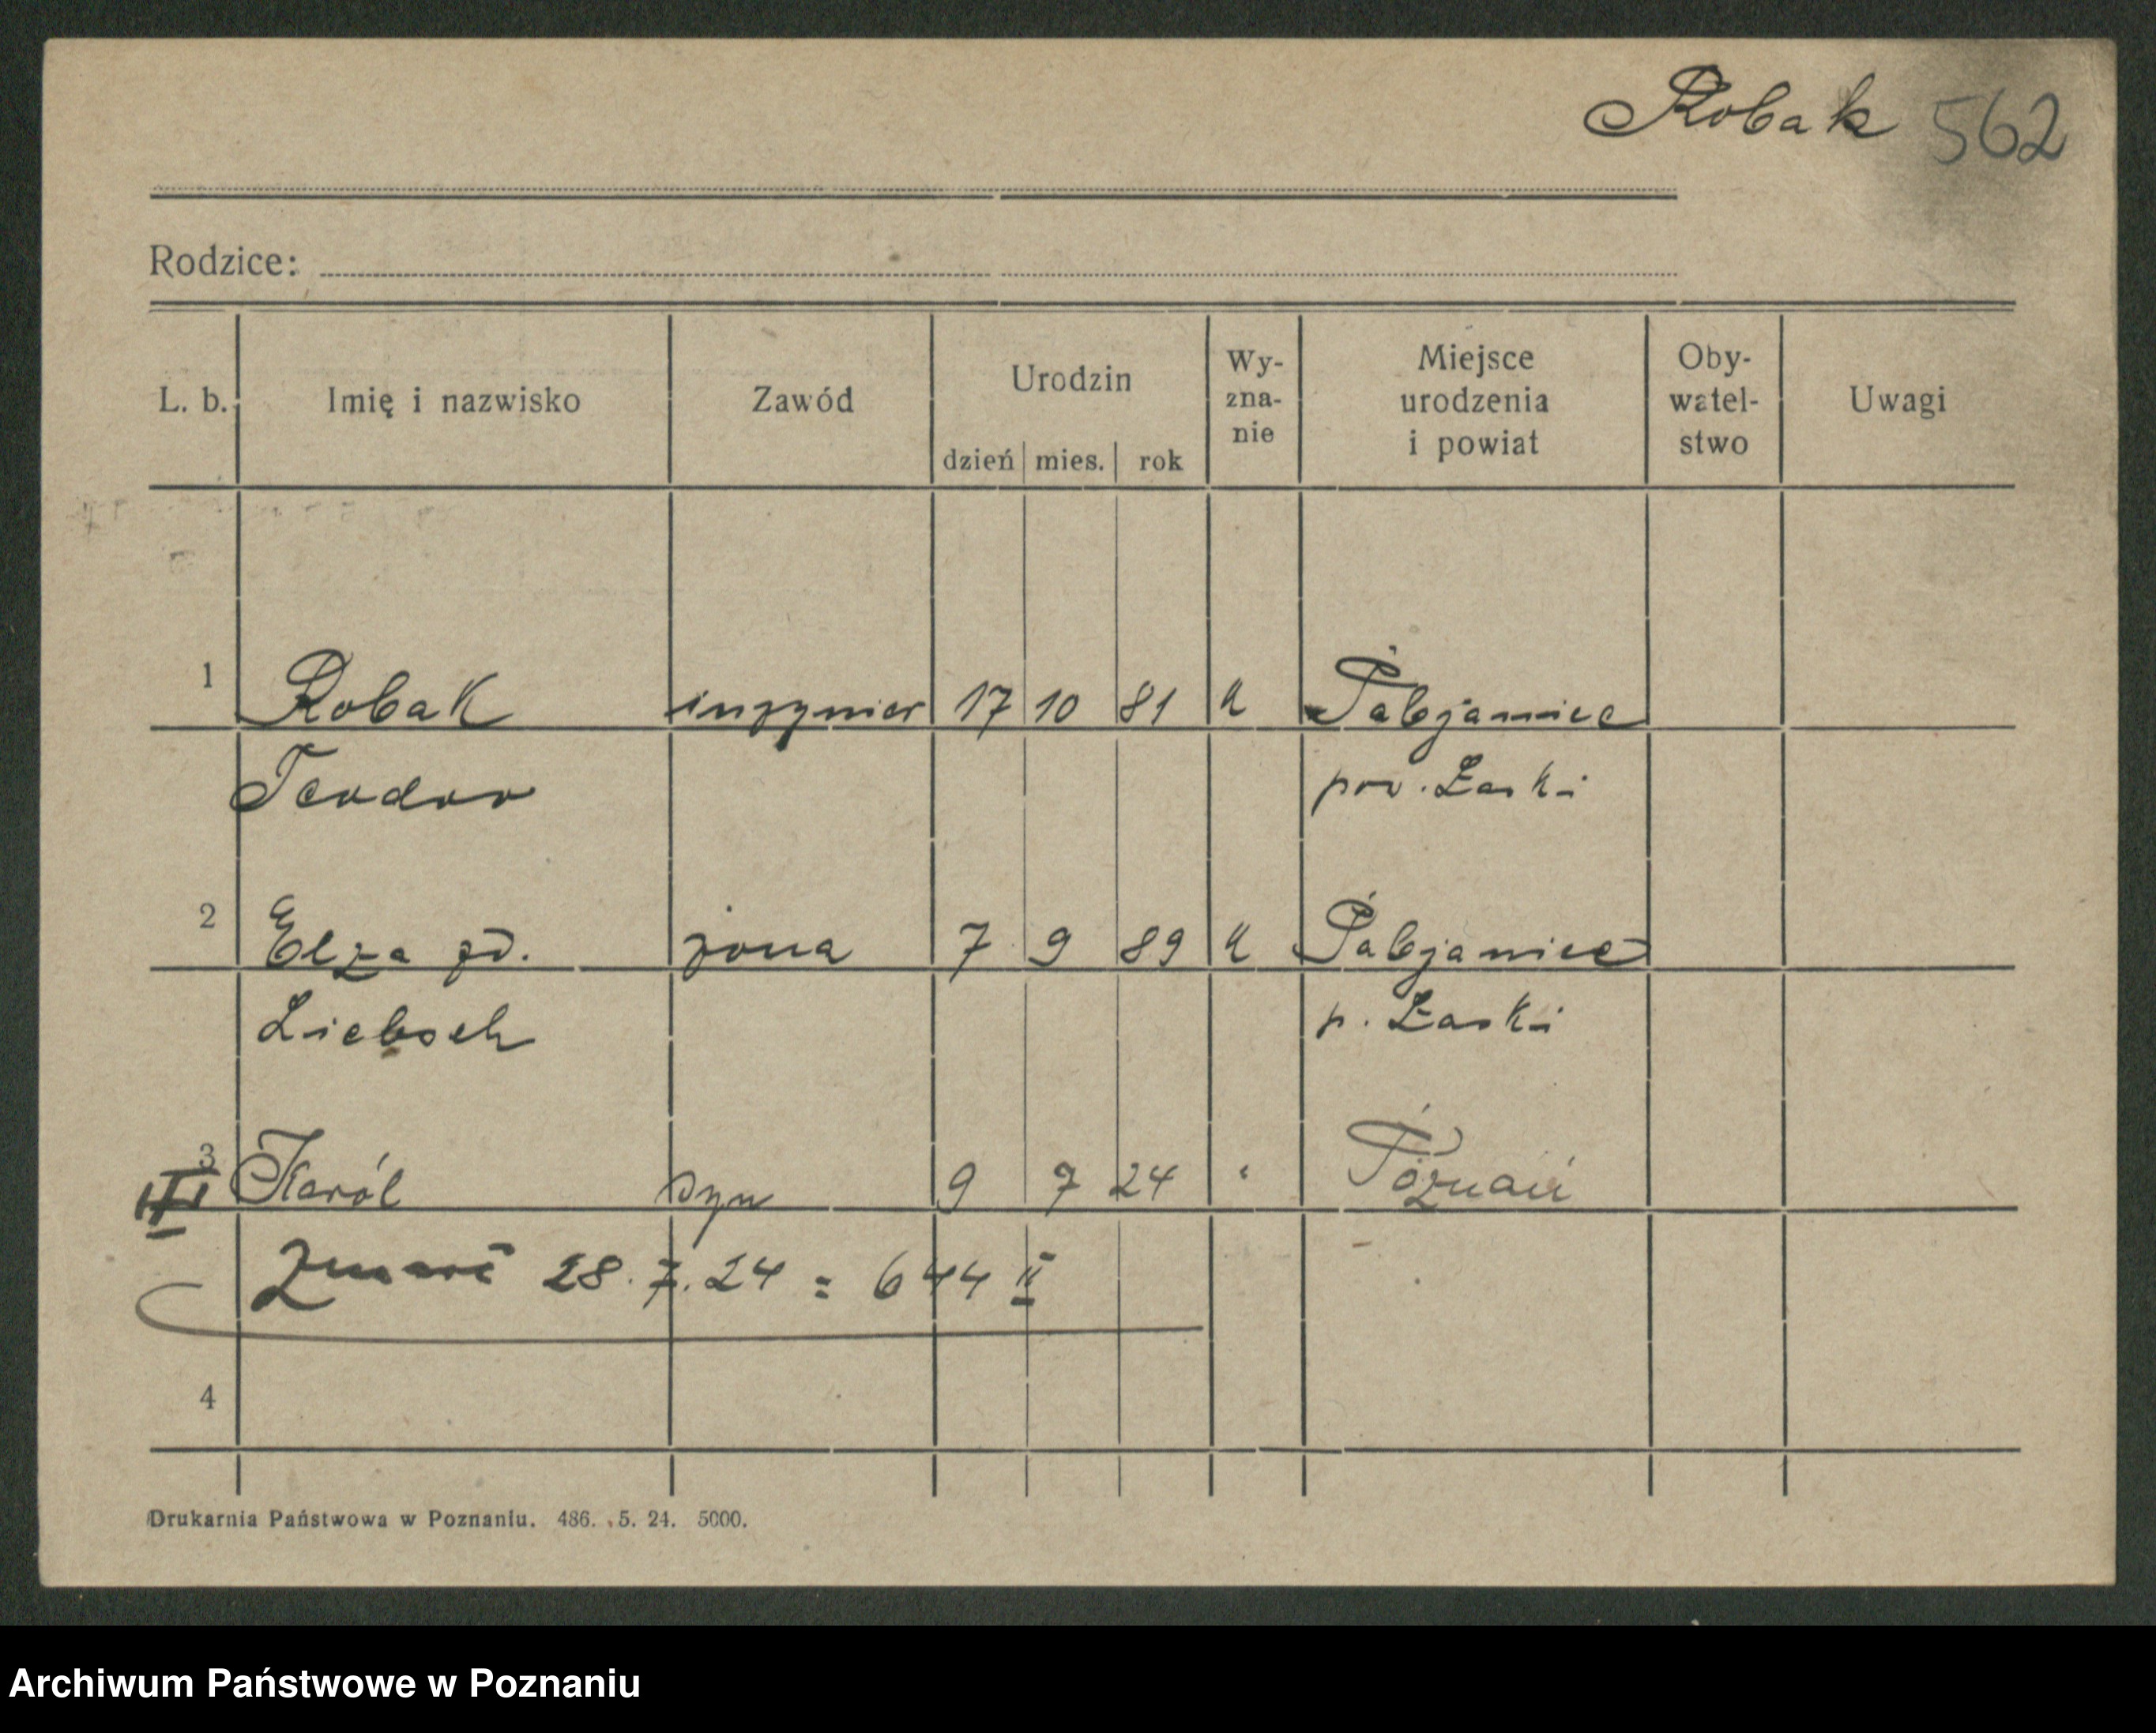 Robak 562
Rodzice:
L. b. Imię i nazwisko Zawód Urodzin dzień mies. rok Wy- zna- nie Miejsce urodzenia i powiat Oby- watel- stwo Uwagi
1 Robak inżynier 17 10 81 k Pabjanice
Teodor pow. Łaski
2 Elza żona 7 9 89 k Pabjanice
Liebsch p. Łaski
3 Karól syn 9 7 24 " Poznań
III
Zmarł 28.7.24 = 644 II
4
Drukarnia Państwowa w Poznaniu. 486. 5. 24. 5000.
Archiwum Państwowe w Poznaniu